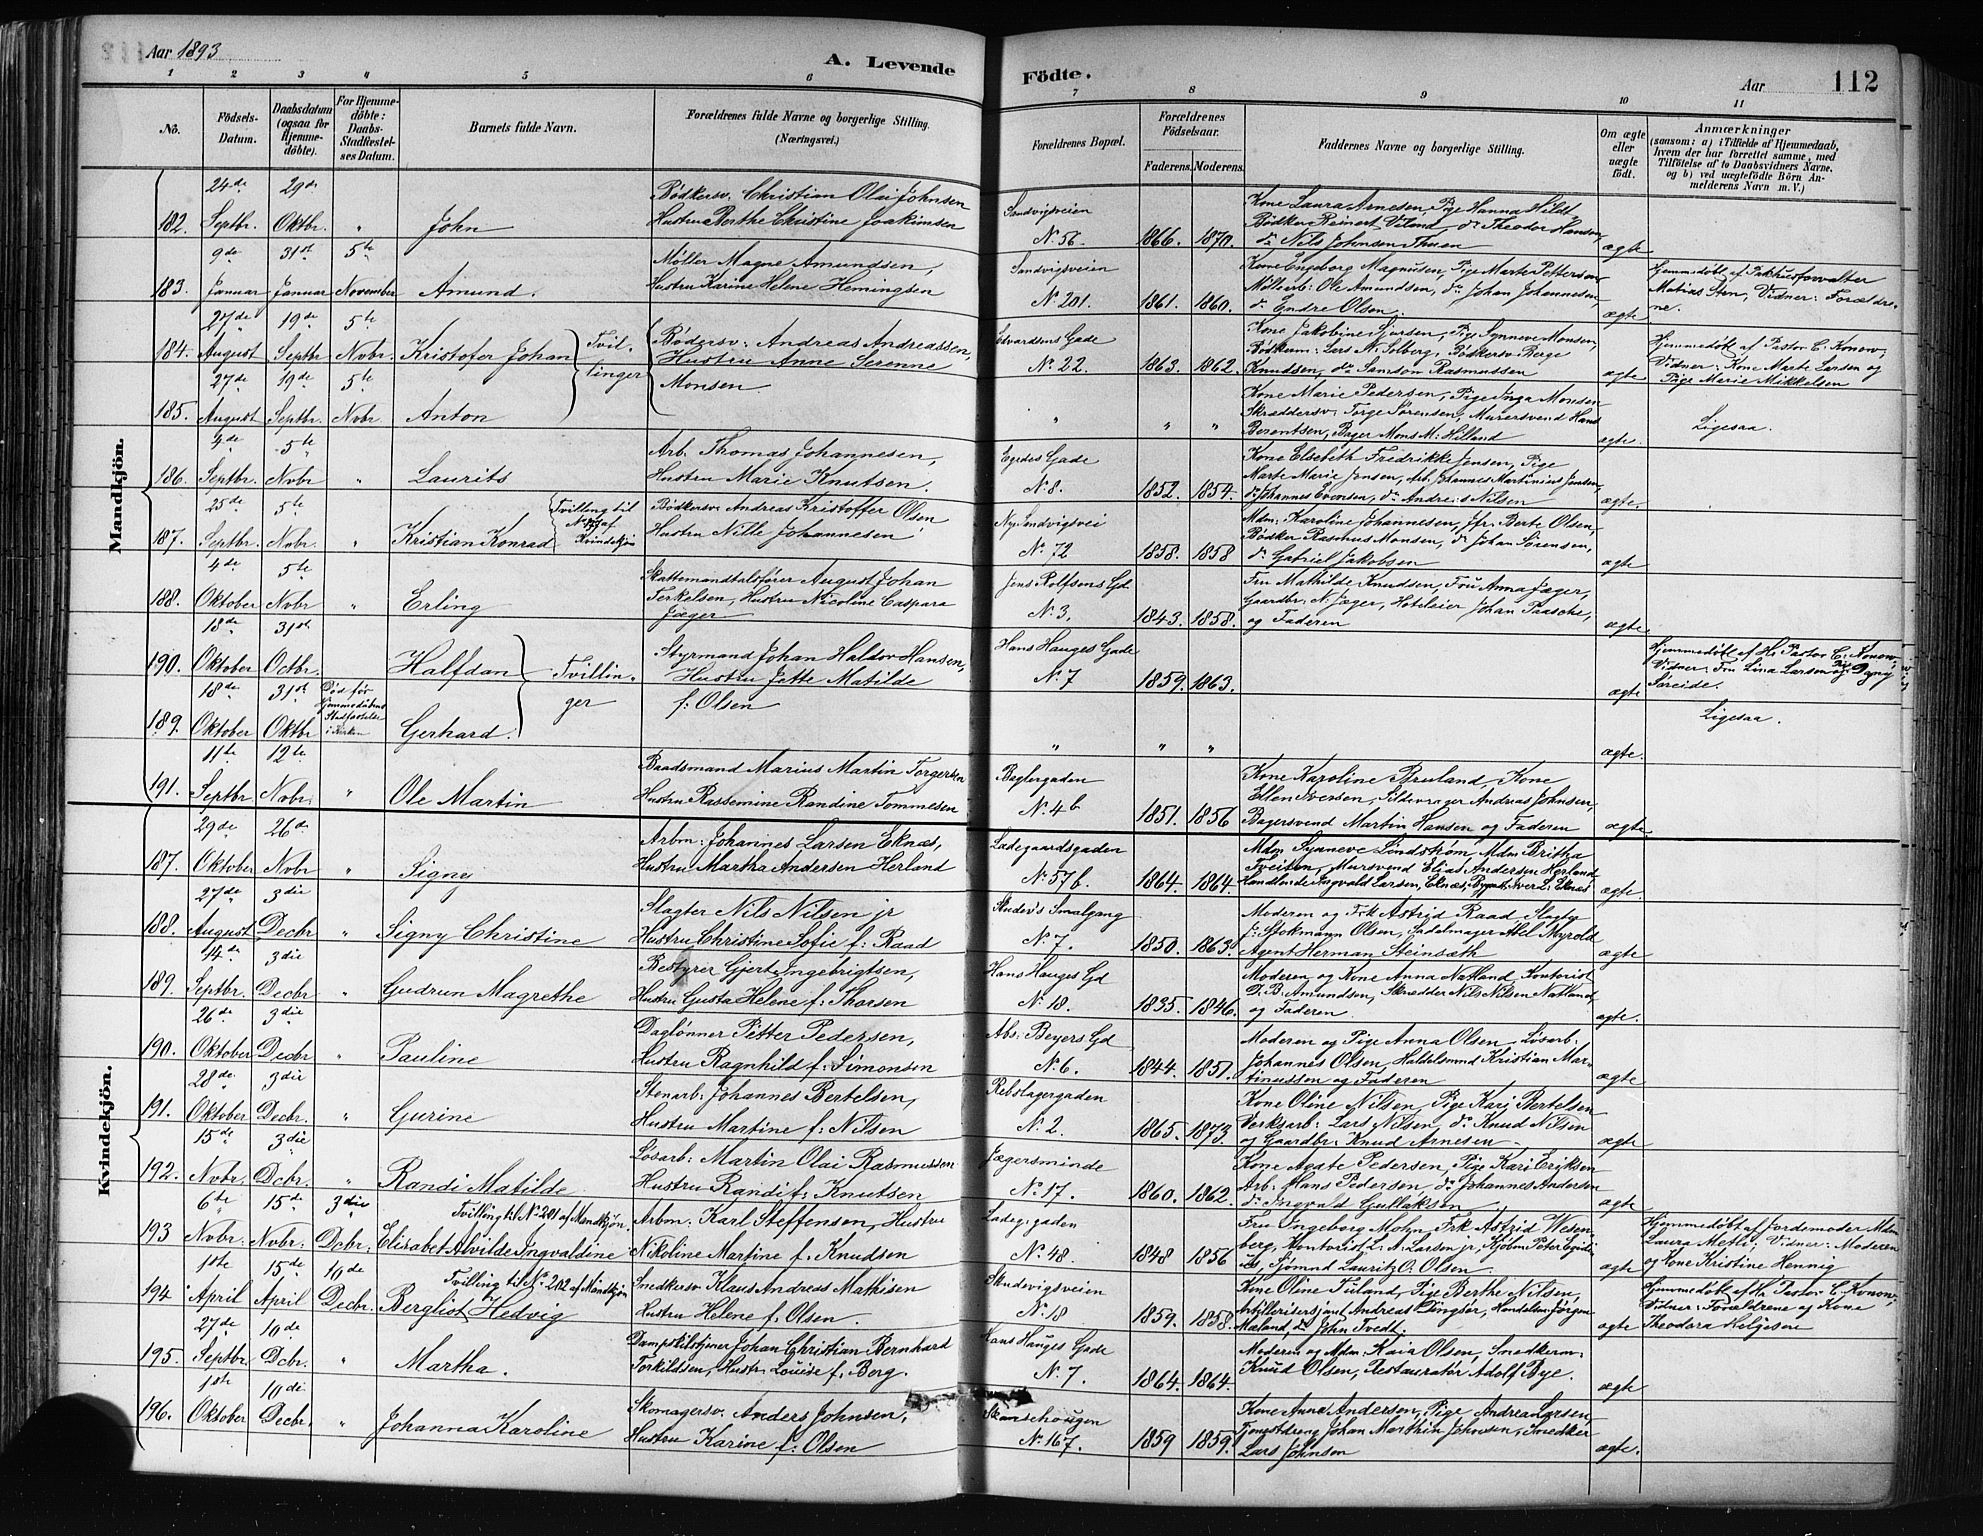 Aar 1893
A. Levende Födte.
Aar
112
1 2 3 4 5 6 7 8 9 10 11
No.
Födsels-Datum.
Daabsdatum (ogsaa for Hjemme-döbte).
For Hjemme-döbte: Daabs-Stadfestel-ses Datum.
Barnets fulde Navn.
Forældrenes fulde Navne og borgerlige Stilling. (Næringsvei.)
Forældrenes Bopæl.
Forældrenes Födselsaar. Faderens. Moderens.
Faddernes Navne og borgerlige Stilling.
Om ægte eller uægte födt.
Anmærkninger (saasom: a) i Tilfælde af Hjemmedaab, hvem der har forrettet samme, med Tilföielse af to Daabsvidners Navne. og b) ved uægtefödte Börn An-melderens Navn m. V.)
Mandkjön.
182. 24de Septbr. 29de Oktbr. " John
Bødkersv. Christian Olai Johnsen
Hustru Berthe Christine Joakimsen
Sandvigsveien No. 56. 1866. 1870.
Kone Laura Arnesen, Pige Hanna Hildt,
Bødker Reinert Viland, do Theodor Hansen,
do Nils Johnsen Thuen
ægte
183. 9de Januar 31st Januar 5te November Amund.
Møller Magne Amundsen,
Hustru Karine Helene Hemingsen
Sandvigsveien No 201. 1861. 1860.
Kone Engeborg Magnusen, Pige Marte Pettersen
Møllearb: Ole Amundsen, do Johan Johannesen,
do Endre Olsen
ægte
Hjemmedøbt af Pakhusforvalter
Matias Sten, Vidner: Forældre-
ne.
184. 27de August 19de Septbr 5te Novbr. Kristofer Johan
Tvil-
linger
Bødersv: Andreas Andreassen,
Hustru Anne Serenne
Monsen
Edvardsens Gade No. 22. 1863. 1862.
Kone Jakobine Sjursen, Pige Synneve Monsen,
Bødkerm: Lars N. Solberg, Bødkersv. Berge
Knudsen, do Samson Rasmussen
ægte
Hjemmedøbt af Pastor C. Konow,
Vidner: Kone Marte Larsen og
Pige Marie Mikkelsen
185. 27de August 19de Septbr. 5te Nobr Anton
" " "
Kone Marie Pedersen, Pige Inga Monsen
Skræddersv. Torge Sørensen, Murersvend Hans
Berentsen, Bager Mons M. Hilland
ægte.
Ligesaa.
186. 4de Septbr. 5te Nvbr " Laurits
Arb. Thomas Johannesen,
Hustru Marie Knutsen.
Egedes Gade No 8. 1852. 1854.
Kone Elsebeth Fredrikke Jensen, Pige
Marte Marie Jensen, Arb. Johannes Martinius Jensen,
do Johannes Evensen, do Andreas Nilsen
ægte.
187. 25de Septbr. 5te Nvbr. " Kristian Konrad
Tvilling til
No 197 af
Kvindekjön
Bødkersv. Andreas Kristoffer Olsen
Hustru Nille Johannesen
Ny: Sandvigsvei No. 72 1858. 1858
Mdm: Karoline Johannesen, Jfr: Berte Olsen,
Bødker Rasmus Monsen, do Johan Sørensen,
do Gabriel Jakobsen
ægte
188. 4de Oktober 5te Nvbr " Erling
Skattemandtalsfører August Johan
Terkelsen, Hustru Nicoline Caspara
Jæger
Jens Rolfsens Gd No 3. 1843. 1858.
Fru Mathilde Knudsen, Fru Anna Jæger,
Gaardbr: N. Jæger, Hoteleier Johan Paasche,
og Faderen
ægte
190. 18de Oktober 31st Octbr. Halfdan
Tvillin-
ger
Styrmand Johan Haldor Hansen,
Hustru Jette Matilde
f: Olsen
Hans Hauges Gade No 7 1859. 1863.
ægte
Hjemmedøbt af Hr Pastor C. Konow,
Vidner: Fru Lina Larsen og Pige Dgny
Søreide.
189. 18de Oktober 31st Oktbr Død før
Hjemmedaabens
Stadfæstelse
i Kirken
Gerhard.
" " "
ægte.
Ligesaa.
191. 11te Septbr 12te Nvbr. " Ole Martin
Baadsmand Marius Martin Torgersen
Hustru Rassemine Randine Tommesen
Baglergaden No. 4b 1851. 1856
Kone Karoline Bruland, Kone
Ellen Iversen, Sildevrager Andreas Johnsen,
Bagersvend Martin Hansen og Faderen
ægte
Kvindekjön.
187. 29de Oktober 26de Nvbr " Signy
Arbm: Johannes Larsen Eknæs,
Hustru Martha Andersen Herland
Ladegaardsgaden No 57b. 1864. 1864.
Mdm Synneve Lindstrøm, Mdm Britha
Tveiten, Mursvend Elias Andersen Herland
Handlende Ingvald Larsen, Eknæs, Iver L. Eknæs
ægte
188. 27de August 3die Decbr " Signy Christine
Slagter Nils Nilsen jr
Hustru Christine Sofie f: Raad
Smalgang No. 7. 1850. 1863.
Moderen og Frk Astrid Raad, Slagter
J: Stokmann Olsen, Sadelmager Abel Myrold
Agent Herman Steinsøth
ægte
189. 14de Septbr. 3die Decbr " Gudrun Magrethe
Bestyrer Gjert Ingebrigtsen,
Hustru Gusta Helene f: Thorsen
Hans Hauges Gd No. 18. 1835. 1846.
Moderen og Kone Anna Natland, Kontorist
D. B. Amundsen, Skrædder Nils Nilsen Natland,
og Faderen
ægte.
190. 26de Oktober 3die Decbr " Pauline
Daglønner Petter Pedersen,
Hustru Ragnhild f: Simonsen
Abs: Beyers Gd No. 6. 1844. 1851.
Moderen og Pige Anna Olsen, Løsarb:
Johannes Olsen, Haldelsmnd Kristian Mar-
tinussen og Faderen
ægte
191. 28de Oktober 3die Decbr. " Gurine
Stenarb: Johannes Bertelsen,
Hustru Martine f: Nilsen
Rebslagergaden No. 2. 1865. 1873.
Kone Oline Nilsen, Pige Kari Bertelsen
Værksarb: Lars Nilsen, do Knud Nilsen
og Gaardbr: Knud Arnesen
ægte
192. 15de Nvbr. 3die Dcbr. " Randi Matilde
Løsarb: Martin Olai Rasmussen
Hustru Randi f: Knutsen
Jægersminde No. 17. 1860. 1862.
Kone Agate Pedersen, Pige Kari Eriksen
Arb: Hans Pedersen, do Johannes Andersen
do Ingvald Gullaksen
ægte
193 6te Nvbr: 15de Nvbr: 3die Dcbr: Elisabet Alvilde Ingvaldine
Tvilling til No 201 af Mandkjøn.
Arbm: Karl Steffensen, Hustru
Nikoline Martine f. Knudsen
Ladeg: gaden No. 48. 1848 1856
Fru Ingeborg Mohn, Frk Astrid Wesen-
berg, Kontorist L. A. Larsen jr, Sjøm Peter Egidi-
us, Sjømnd Lauritz O. Olsen.
ægte
Hjemmedøbt af Jordemoder Mdm
Laura Metli, Vidner: Moderen
og Kone Kristine Hennig
194 10te April 15de April 10de Decbr. Bergliot Hedvig
Tvilling til No 202 af Mandkjøn
Smedkersv Klaus Andreas Mathisen
Hustru Helene f. Olsen.
Sandvigsveien No. 18 1859. 1858.
Kone Oline Fuland, Pige Berthe Nilsen,
Artillerisersjant Andreas Dingsør, Handelsm: Jørgen
Mæland, do John Tvedt.
ægte
Hjemmedøbt af Hr Pastor C. Konow,
Vidner: Forældrene og Kone
Theodora Helgesen
195. 27de Septbr. 10de Dcbr. " Martha.
Dampskibstjener Johan Christian Bernhard
Torkildsen, Hustr: Louise f. Berg.
Hans Hauges Gade No. 7. 1864. 1864.
Moderen og Mdm: Kaia Olsen, Smedkerm:
Knud Olsen, Restauratør Adolf Bye.
ægte
196. 1ste Oktober 10de Decbr. " Johanna Karoline
Skomagersv. Anders Johnsen,
Hustru Karine f: Olsen
Skansehougen No. 167. 1859 1859.
Kone Anna Andersen, Pige Andrea Larsen,
Tjenestdreng Johan Marthin Johnsen, Snedker
Lars Johnsen
ægte.